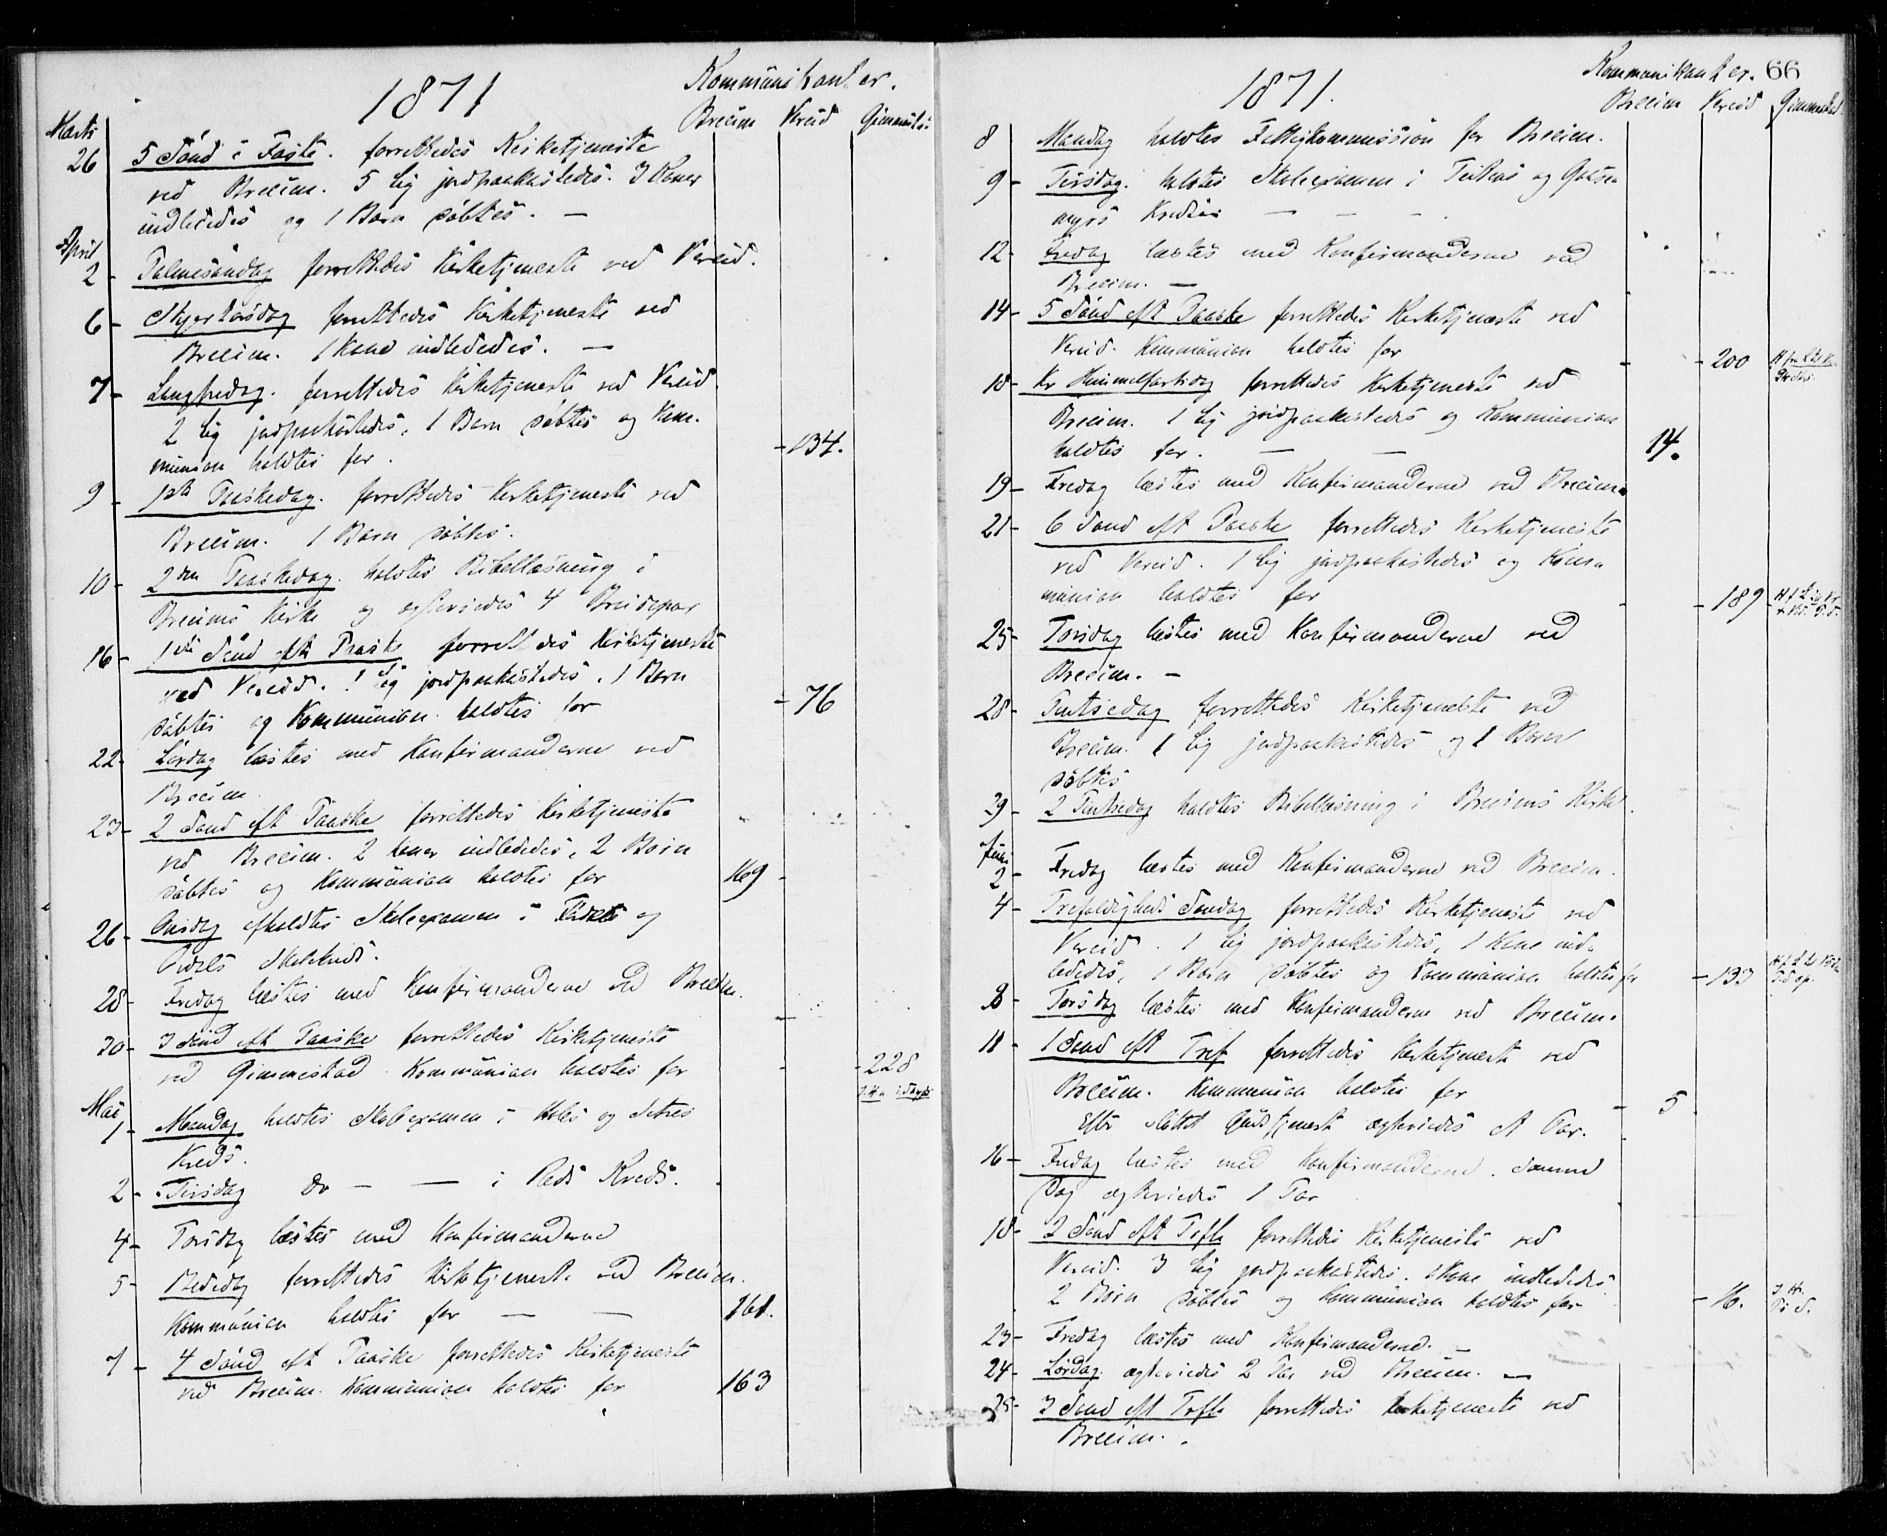 1871
Kommunikanter.
Breim Vereid Gimmestad
Marts
26 5 Sønd i Faste. forrettedes Kirketjeneste
ved Breim. 5 Lig jordpaakastedes. 3 Koner
indlededes og 1 Barn døbtes. —
April
2 - Palmesøndag forrettedes Kirketjeneste ved Vereid.
6 - Skjertorsdag forrettedes Kirketjeneste ved
Breim. 1 Kone indlededes. —
7 - Langfredag. forrettedes Kirketjeneste ved Vereid
2 Lig jordpaakastedes, 1 Barn døbtes og Kom-
munion holdtes for. - 134.
9 - 1ste Paaskedag. forrettedes Kirketjeneste ved
Breim. 1 Barn døbtes.
10 - 2den Paaskedag. holdtes Bibellæsning i
Breims Kirke og egteviedes 4 Brudepar
16 - 1ste Sønd eft Paaske forrettedes Kirketjeneste
ved Vereid. 1 Lig jordpaakastedes. 1 Barn
døbtes og Kommunion holdtes for - 76
22- Lørdag læstes med Konfirmanderne ved
Breim.
23- 2 Sønd eft Paaske forrettedes Kirketjeneste
ved Breim. 2 koner indlededes, 2 Børn
døbtes og Kommunion holdtes for 169 -
26 - Onsdag afholdtes Skoleexamen i og
28- Fredag læstes med Konfirmanderne ved Breim.
30- 3 Sønd eft Paaske forrettedes Kirketjeneste
ved Gimmestad. Kommunion holdtes for - 228
Mai
1 - Mandag holdtes Skoleexamen i og
Kreds.
2 - Tirsdag do — — i Reds Kreds.
4- Torsdag læstes med Konfirmanderne
5- Bededag forrettedes Kirketjeneste ved Breim.
Kommunion holdtes for — — 161.
7- 4 Sønd eft Paaske forrettedes Kirketjeneste
ved Breim. Kommunion holdtes for 163
1871.
Kommunikanter. 66
Breim Vereid Gimmestad
8 Mandag holdtes Fattigkommission for Breim.
9 - Tirsdag. holdtes Skoleexamen i og
myrs Kredse — — -
12- Fredag læstes med Konfirmanderne ved
Breim. —
14- 5 Sønd eft Paaske forrettedes Kirketjeneste ved
Vereid. Kommunion holdtes for - 200
18- Kr Himmelfartsdag forrettedes Kirketjeneste ved
Breim. 1 Lig jordpaakastedes og Kommunion
holdtes for. — — 14.
19- Fredag læstes med Konfirmanderne ved Breim.
21- 6 Sønd eft Paaske forrettedes Kirketjeneste
ved Vereid. 1 Lig jordpaakastedes og Kom-
munion holdtes for - 189
25- Torsdag læstes med Konfirmanderne ved
Breim. —
28- Pintsedag forrettedes Kirketjeneste ved
Breim. 1 Lig jordpaakastedes og 1 Barn
døbtes
29- 2 Pintsedag holdtes Bibellæsning i Breims Kirke.
Juni
2- Fredag læstes med Konfirmanderne ved Breim.
4- Trefoldigheds Søndag forrettedes Kirketjeneste ved
Vereid. 1 Lig jordpaakastedes, 1 Kone ind-
lededes, 1 Barn døbtes og Kommunion holdtes for - 133
8- Torsdag læstes med Konfirmanderne ved Breim.
11- 1 Sønd eft Tref forrettedes Kirketjeneste ved
Breim. Kommunion holdtes for - 5
Efter sluttet Gudstjeneste egteviedes et Par.
16- Fredag læstes med Konfirmanderne. Samme
Dag egteviedes 1 Par
18- 2 Sønd eft Trefh forrettedes Kirketjeneste ved
Vereid. 3 Lig jordpaakastedes. 1 Kone indlededes
2 Børn døbtes og Kommunion holdtes for - 16.
23- Fredag læstes med Konfirmanderne. —
24- Lørdag. egteviedes 2 Par ved Breim. —
25- 3 Sønd eft Trefh forrettedes Kirketjeneste ved
Breim.